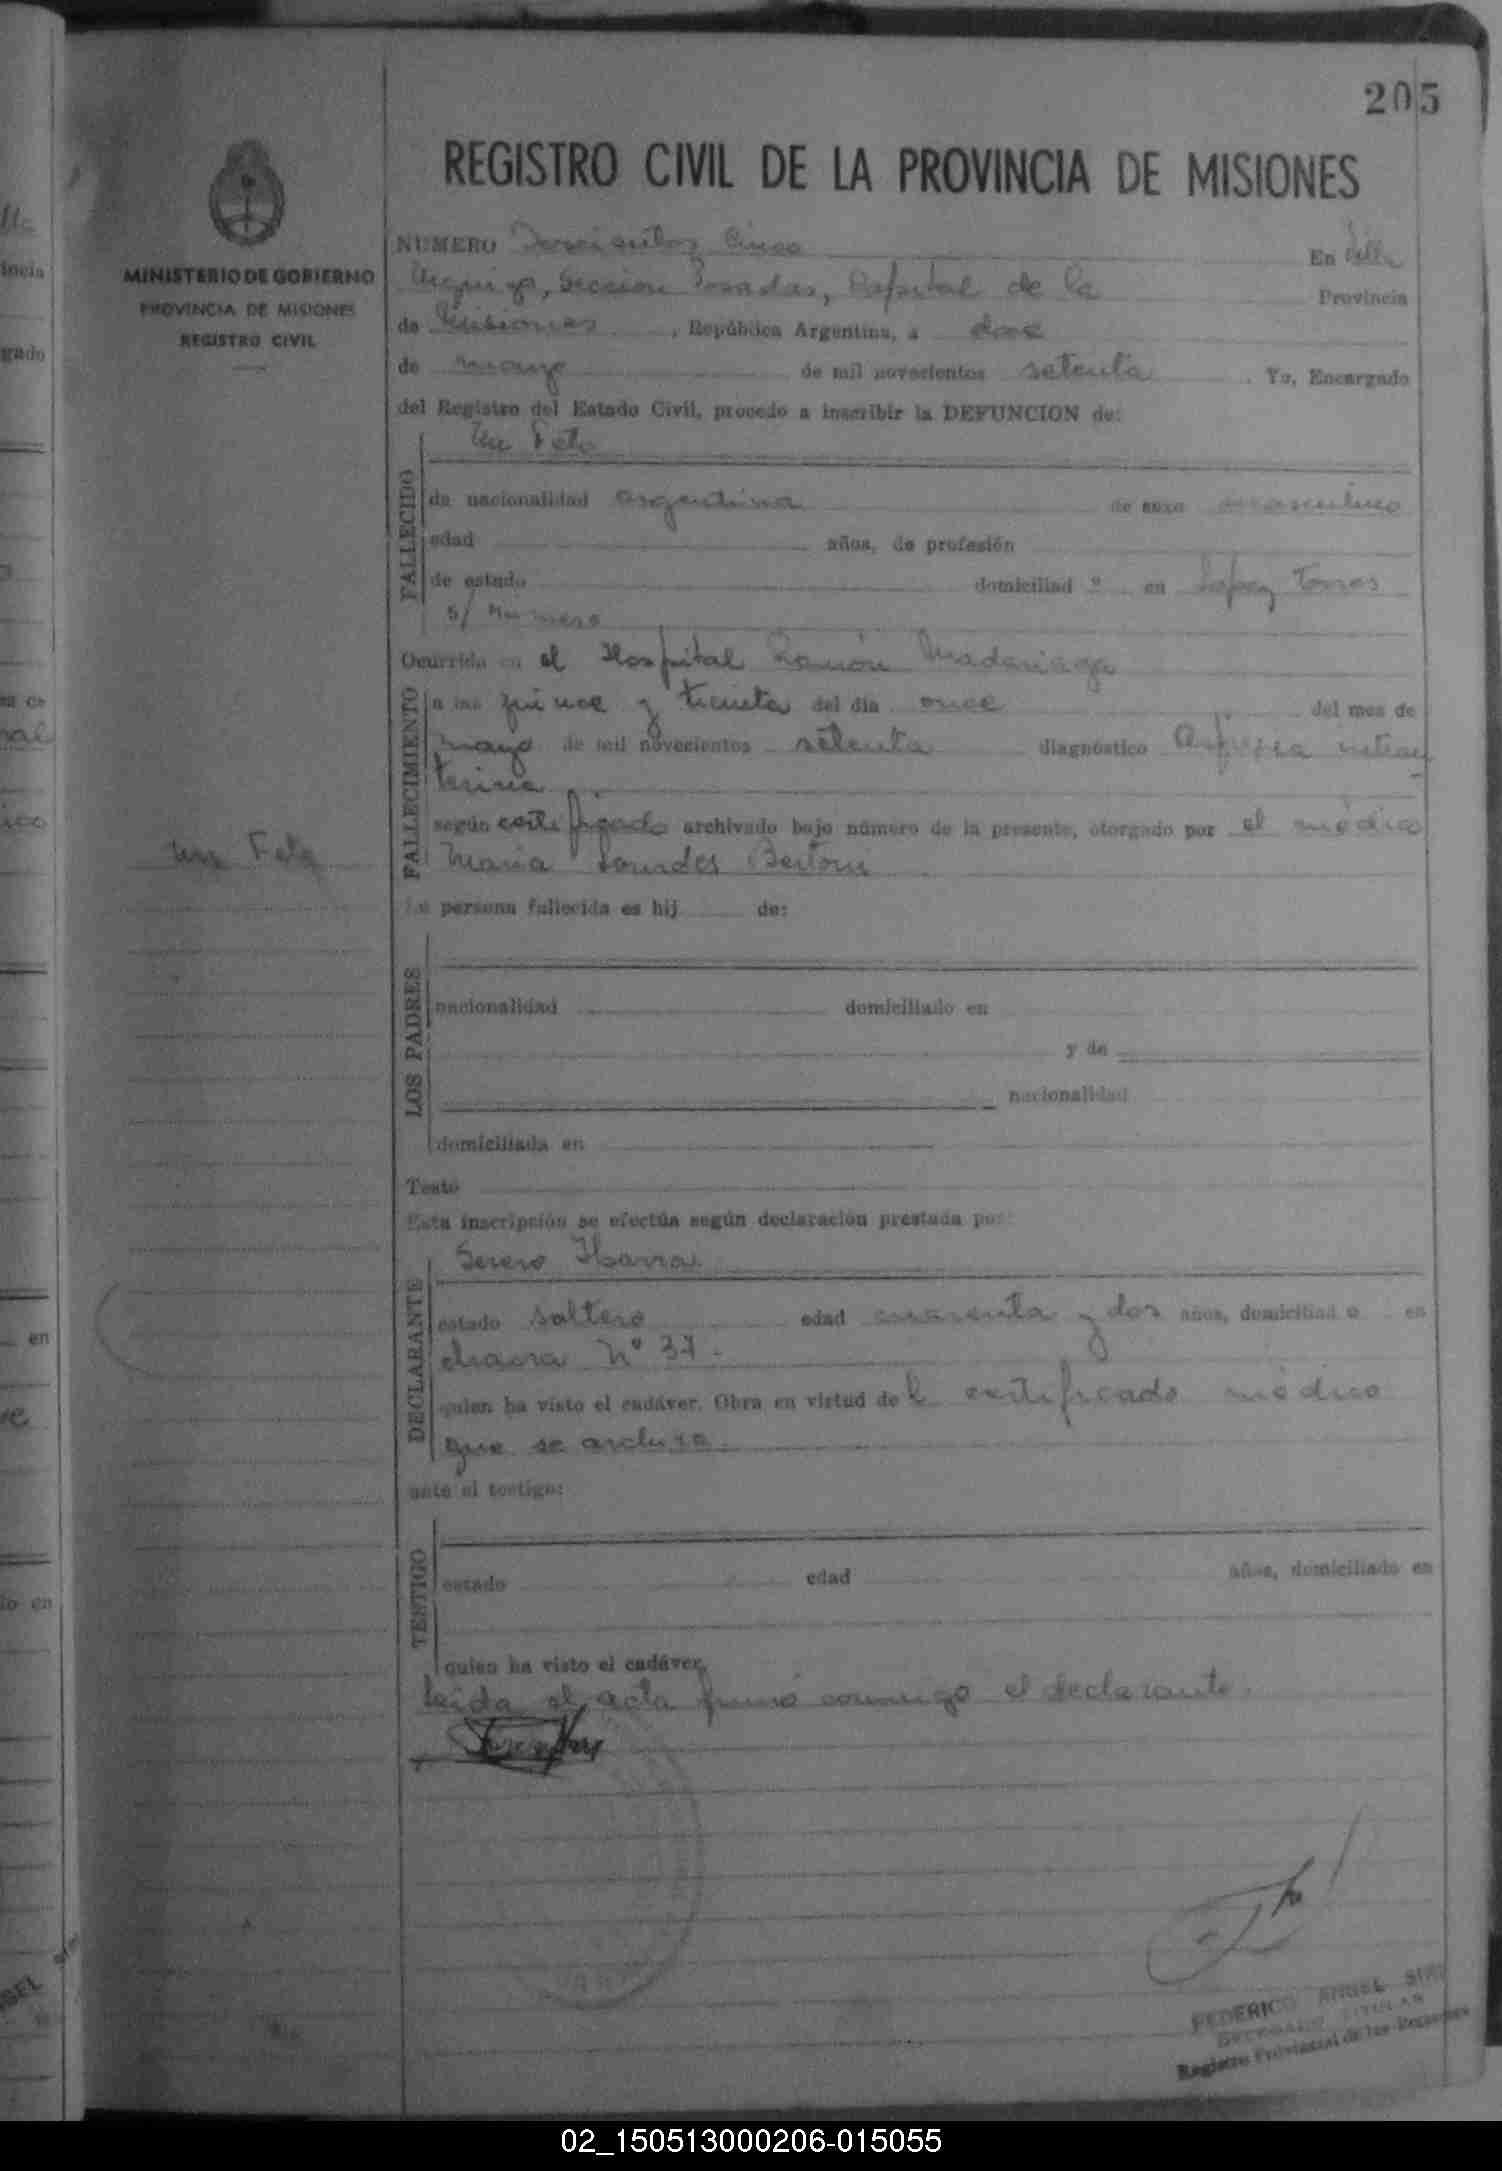 205
REGISTRO CIVIL DE LA PROVINCIA DE MISIONES
MINISTERIO DE GOBIERNO
PROVINCIA DE MISIONES
REGISTRO CIVIL
NUMERO Doscientos Cinco En Villa
Urquiza, Sección Posadas, Capital de la Provincia
de Misiones, República Argentina, a doce
de mayo de mil novecientos setenta. Yo, Encargado
del Registro del Estado Civil, procedo a inscribir la DEFUNCION de:
Un Feto
FALLECIDO
de nacionalidad argentina de sexo masculino
edad años, de profesión
de estado domiciliado en López Torres
s/ Numero
Ocurrida en el Hospital Ramón Madariaga
FALLECIMIENTO
a las quince y treinta del día once del mes de
mayo de mil novecientos setenta diagnóstico Asfixia intrau
terina
según certificado archivado bajo número de la presente, otorgado por el médico
María Lourdes Bertoni
Un Feto
La persona fallecida es hij de:
LOS PADRES
nacionalidad domiciliado en
y de
nacionalidad
domiciliada en
Testó
Esta inscripción se efectúa según declaración prestada por:
DECLARANTE
Severo Ibarra
estado soltero edad cuarenta y dos años, domiciliad o en
chacra Nº 37.
quien ha visto el cadáver. Obra en virtud de l certificado médico
que se archiva.
ante el testigo:
TESTIGO
estado edad años, domiciliado en
quien ha visto el cadáver.
Leida el acta firmó conmigo el declarante.
FEDERICO ANGEL
DELEGADO TITULAR
Registro Provincial de las Personas
02_150513000206-015055